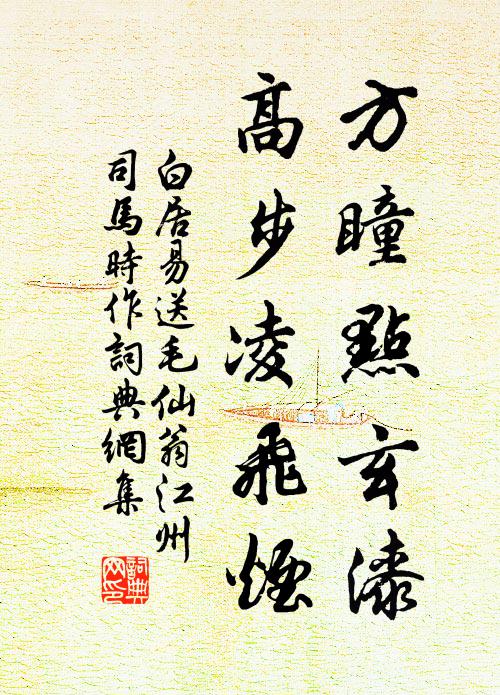 方瞳點玄漆
高步凌飛煙
白居易送毛仙翁江州
司馬時作詞典網集
詞典
网印